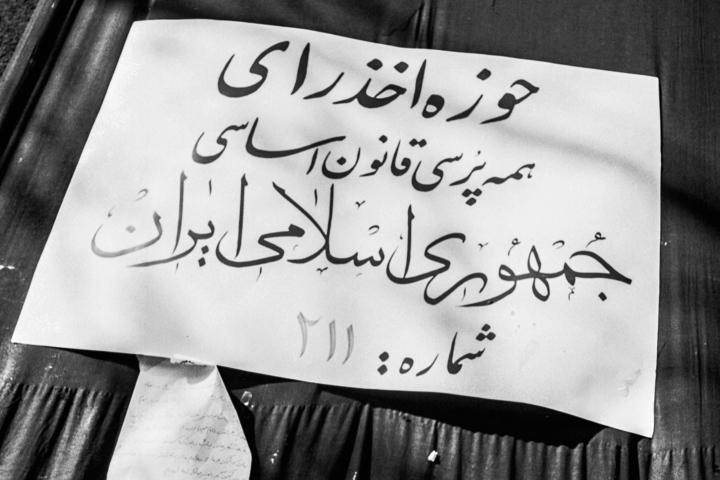 حوزه اخذ رای
همه پرسی قانون اساسی
جمهوری اسلامی ایران
شماره: ۲۱۱